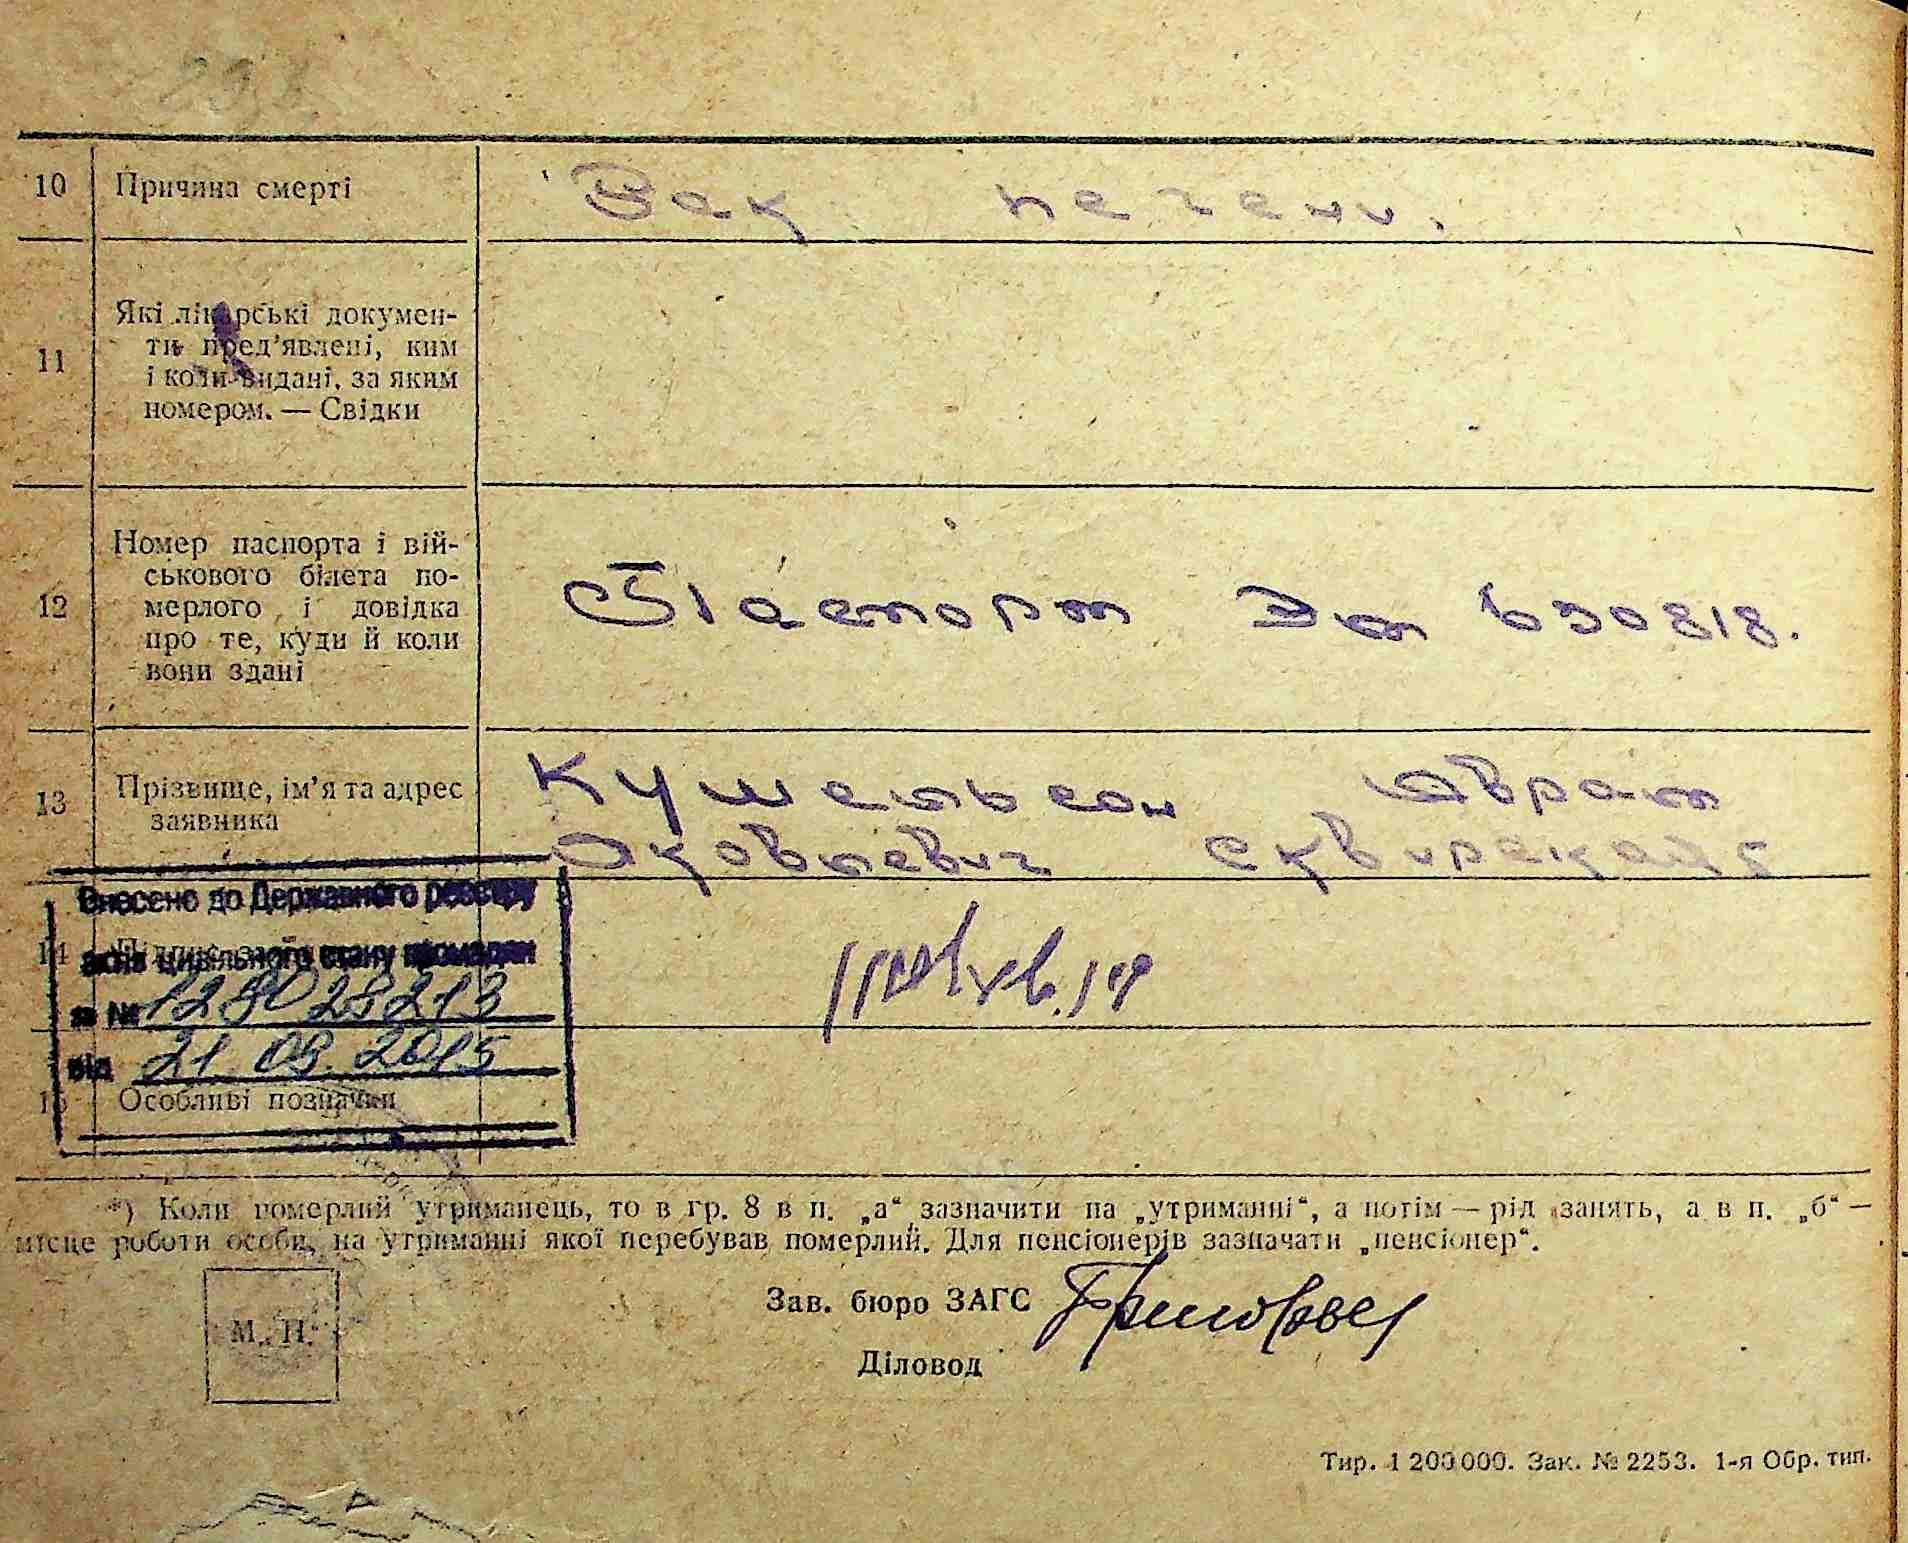 10 Причина смерті Рак печени.
11 Які лікарські докумен-
ти пред'явлені, ким
і коли видані, за яким
номером. — Свідки
Номер паспорта і вій-
ськового білета по-
12 мерлого і довідка
про те, куди й коли
вони здані
Паспорт
630818.
13 Прізвище, ім'я та адрес
заявника
Абрам
Яковлевич Сквирская 5
Внесено до Державного реєстру
14
актів цивільного стану громадян
за № 128028213
від 21 09. 2015
15 Особливі позначки
*) Коли померлий утриманець, то в гр. 8 в п. „а“ зазначити на „утриманні“, а потім — рід занять, а в п. „б“ —
місце роботи особи, на утриманні якої перебував померлий. Для пенсіонерів зазначати „пенсіонер“.
Зав. бюро ЗАГС
М. П.
Діловод
Тир. 1 200 000. Зак. № 2253. 1-я Обр. тип.